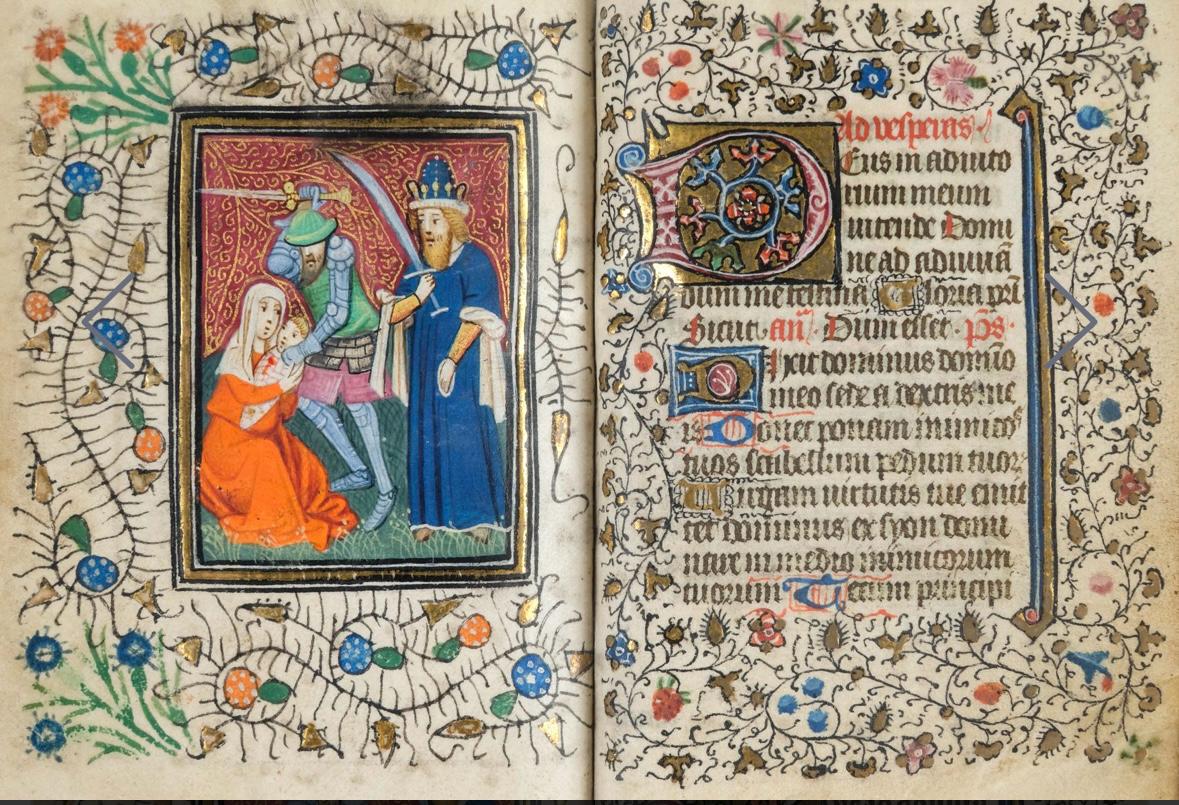 Ad vesperas
Deus in adiuto
rium meum
intende Domi
ne ad adiuuā
dum me festina Gloria pr̄i
Sicut. an̄. Dum esset. p̄s.
Dixit dominus domīo
meo sede a dextris me
is Donec ponam inimicos
tuos scabellum pedum tuor
Virgam uirtutis tue emit
tet dominus ex syon domi
nare in medio inimicorum
tuorum Tecum principi